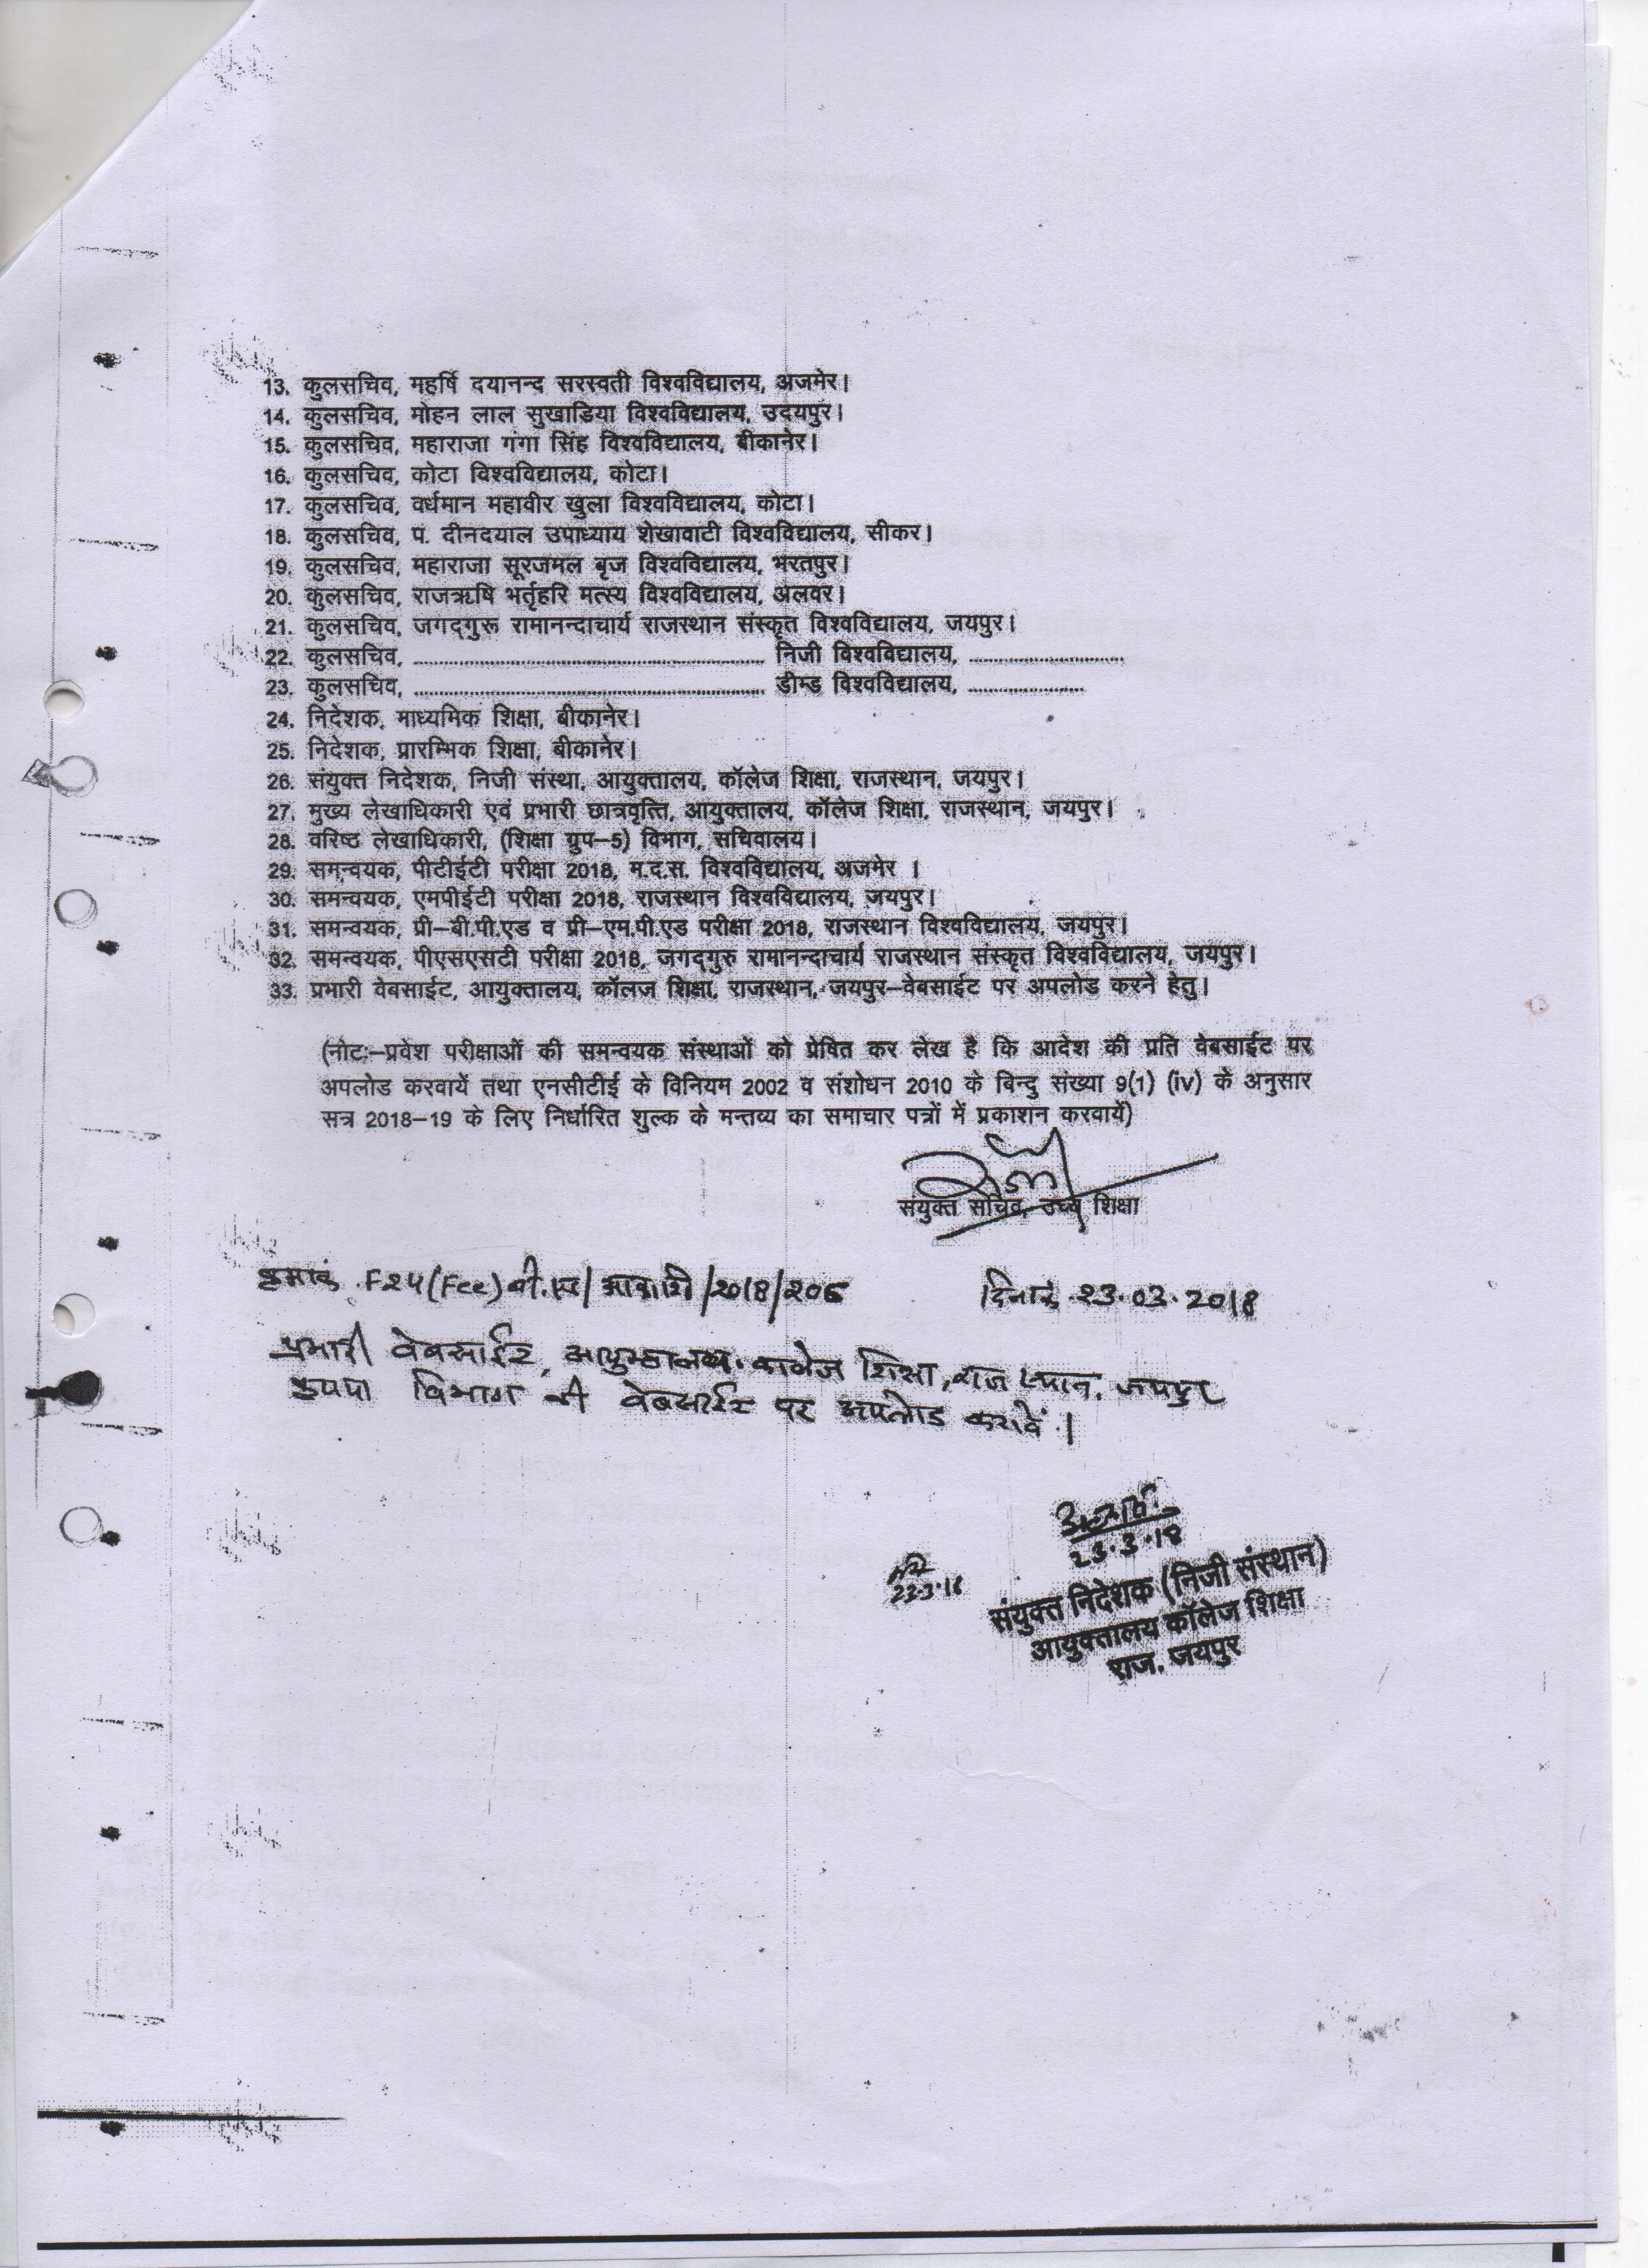 13. कुलसचिव, महर्षि दयानन्द सरस्वती विश्वविद्यालय, अजमेर।
14. कुलसचिव, मोहन लाल सुखाडिया विश्वविद्यालय, उदयपुर।
15. कुलसचिव, महाराजा गंगा सिंह विश्वविद्यालय, बीकानेर।
16. कुलसचिव, कोटा विश्वविद्यालय, कोटा।
17. कुलसचिव, वर्धमान महावीर खुला विश्वविद्यालय, कोटा।
18. कुलसचिव, प. दीनदयाल उपाध्याय शेखावाटी विश्वविद्यालय, सीकर।
19. कुलसचिव, महाराजा सूरजमल बृज विश्वविद्यालय, भरतपुर।
20. कुलसचिव, राजऋषि भर्तृहरि मत्स्य विश्वविद्यालय, अलवर।
21. कुलसचिव, जगद्गुरू रामानन्दाचार्य राजस्थान संस्कृत विश्वविद्यालय, जयपुर।
22. कुलसचिव, ........................ निजी विश्वविद्यालय, ............
23. कुलसचिव, ........................ डीम्ड विश्वविद्यालय, ............
24. निदेशक, माध्यमिक शिक्षा, बीकानेर।
25. निदेशक, प्रारम्भिक शिक्षा, बीकानेर।
26. संयुक्त निदेशक, निजी संस्था, आयुक्तालय, कॉलेज शिक्षा, राजस्थान, जयपुर।
27. मुख्य लेखाधिकारी एवं प्रभारी छात्रवृत्ति, आयुक्तालय, कॉलेज शिक्षा, राजस्थान, जयपुर।
28. वरिष्ठ लेखाधिकारी, (शिक्षा ग्रुप–5) विभाग, सचिवालय।
29. समन्वयक, पीटीईटी परीक्षा 2018, म.द.स. विश्वविद्यालय, अजमेर ।
30. समन्वयक, एमपीईटी परीक्षा 2018, राजस्थान विश्वविद्यालय, जयपुर।
31. समन्वयक, प्री–बी.पी.एड व प्री–एम.पी.एड परीक्षा 2018, राजस्थान विश्वविद्यालय, जयपुर।
32. समन्वयक, पीएसएसटी परीक्षा 2018, जगद्गुरु रामानन्दाचार्य राजस्थान संस्कृत विश्वविद्यालय, जयपुर।
33. प्रभारी वेबसाईट, आयुक्तालय, कॉलज शिक्षा, राजस्थान, जयपुर–वेबसाईट पर अपलोड करने हेतु।
(नोटः–प्रवेश परीक्षाओं की समन्वयक संस्थाओं को प्रेषित कर लेख है कि आदेश की प्रति वेबसाईट पर
अपलोड करवायें तथा एनसीटीई के विनियम 2002 व संशोधन 2010 के बिन्दु संख्या 9(1) (iv) के अनुसार
सत्र 2018–19 के लिए निर्धारित शुल्क के मन्तव्य का समाचार पत्रों में प्रकाशन करवायें)
संयुक्त सचिव, उच्च शिक्षा
क्रमांक (Fee) /2018/206 दिनांक 23.03.2018
प्रभारी वेबसाईट, आयुक्तालय, कालेज शिक्षा, राजस्थान, जयपुर
कृपया विभाग की वेबसाईट पर अपलोड करावें।
23.3.18
23.3.18
संयुक्त निदेशक (निजी संस्थान)
आयुक्तालय कॉलेज शिक्षा
राज. जयपुर